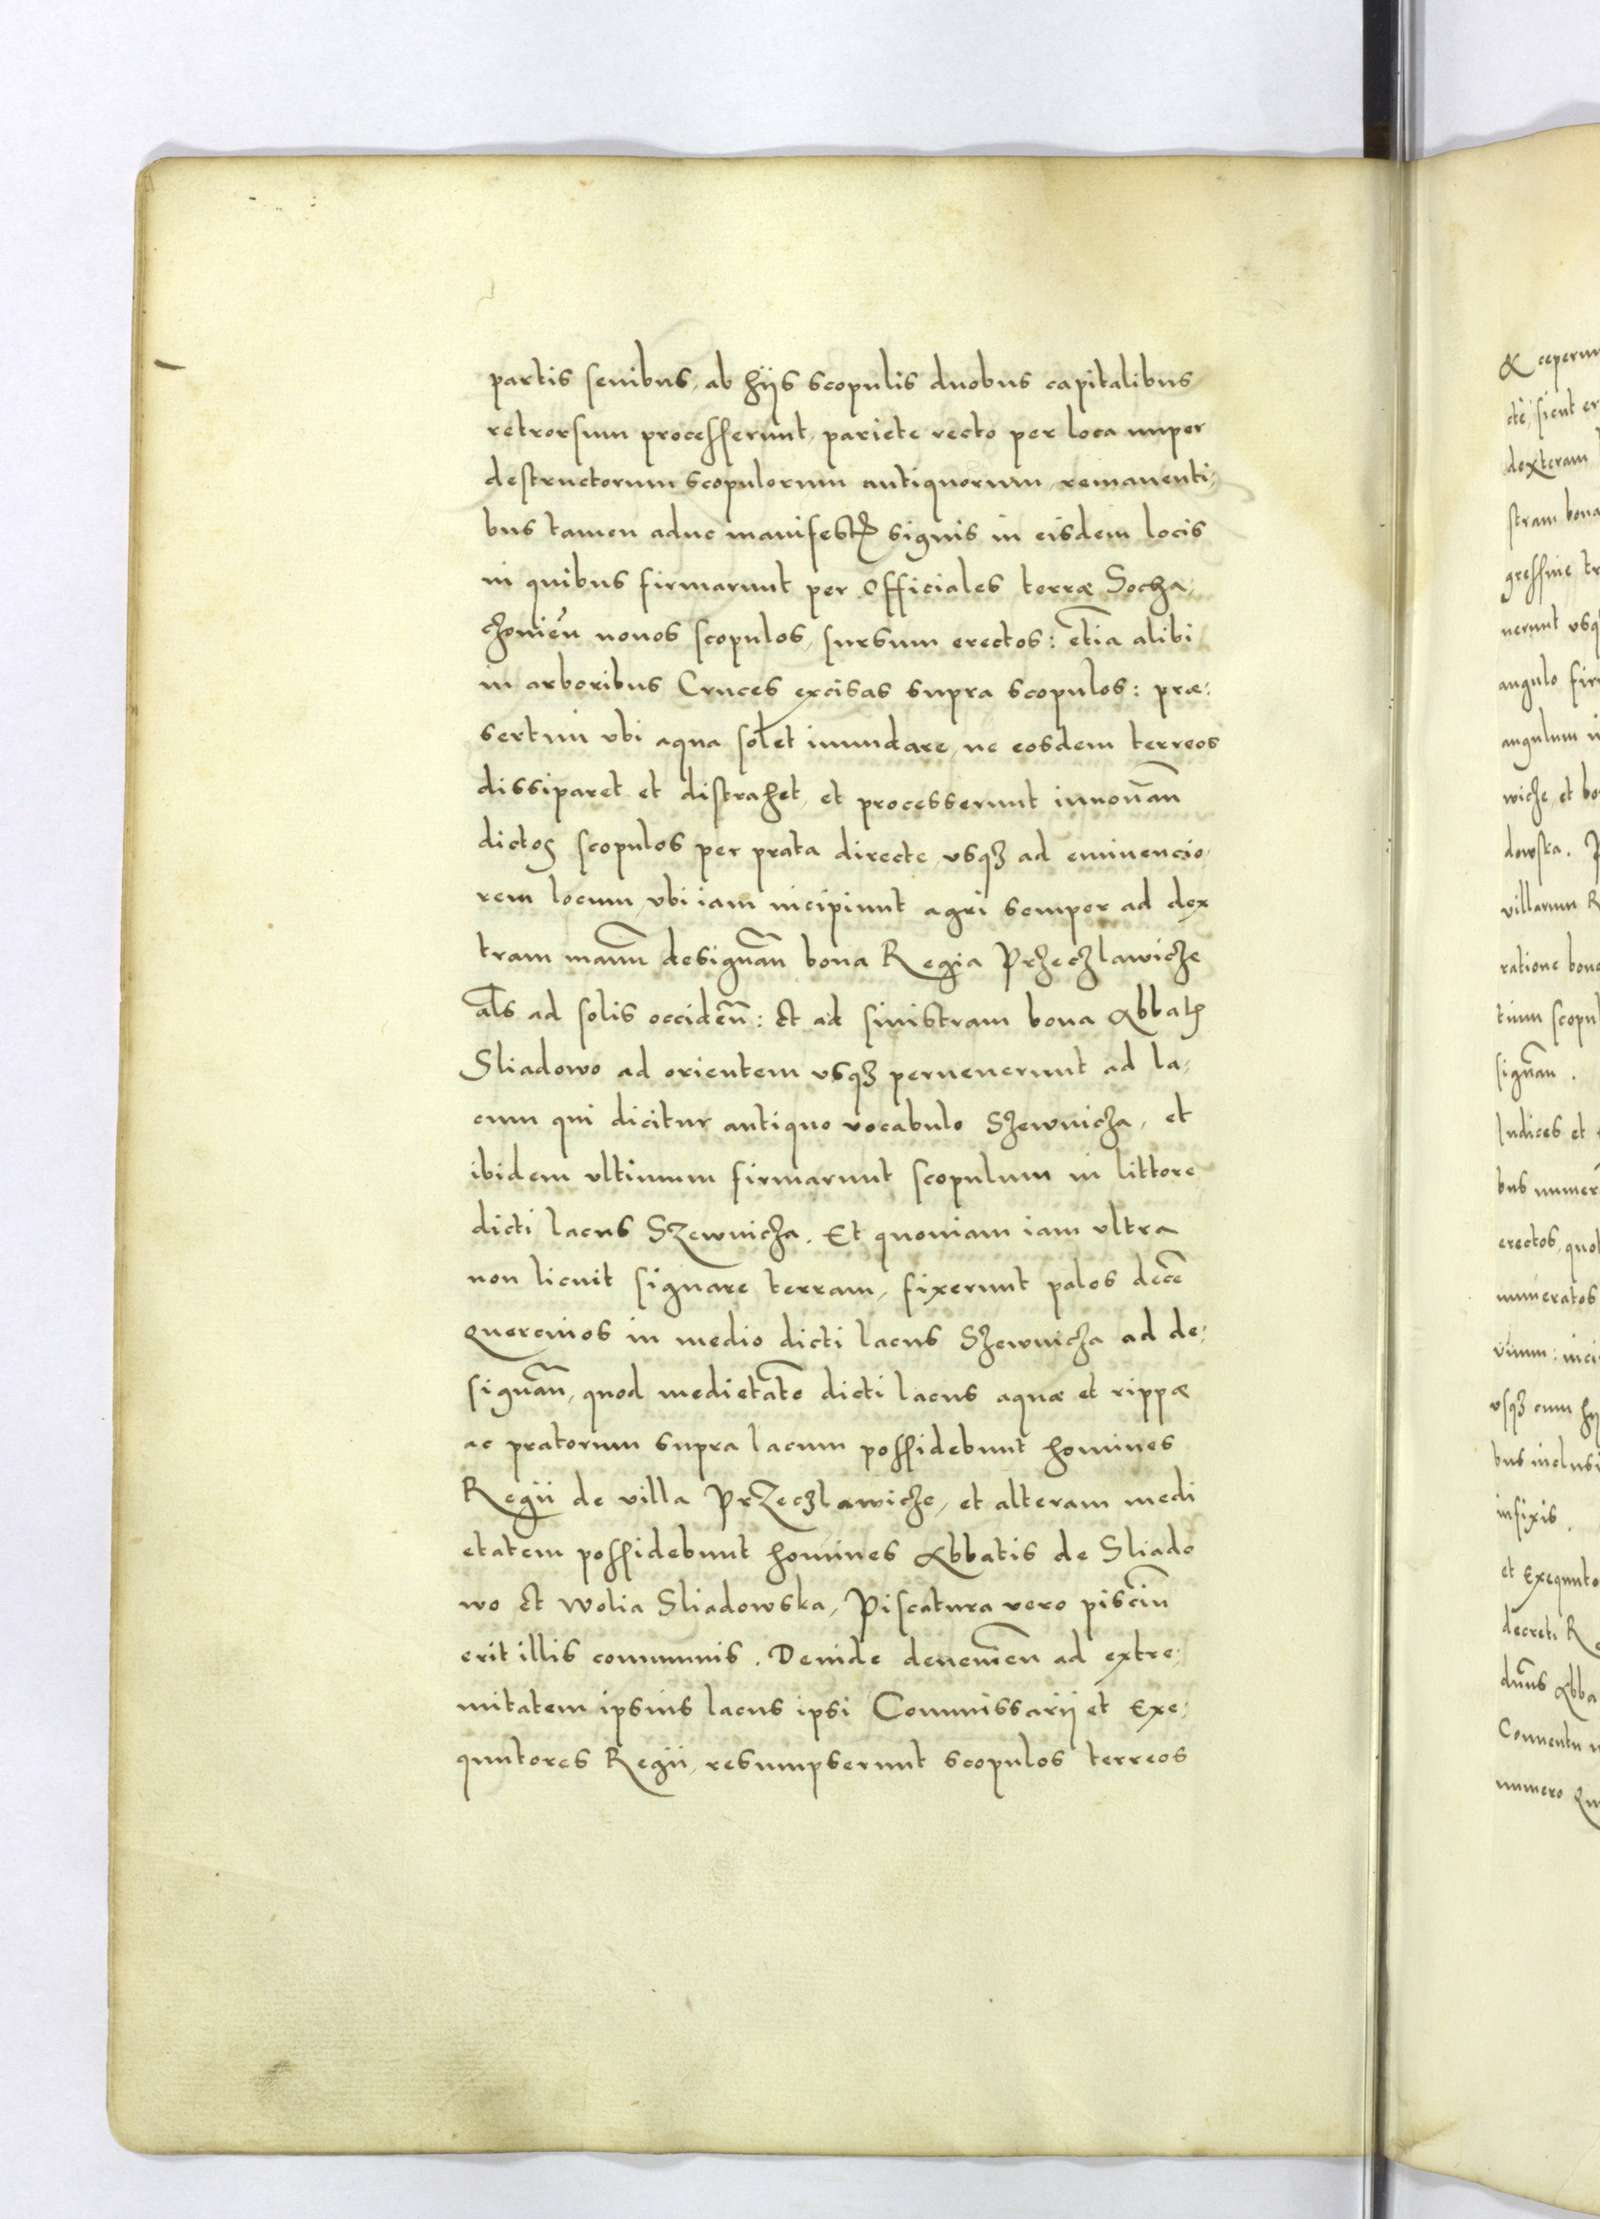 partis senibus, ab hijs scopulis duobus capitalibus
retrorsum processerunt, pariete recto per loca nuper
destructorum scopulorum antiquorum, remanenti,
bus tamen aduc manifestꝭ signis in eisdem locis
in quibus firmarunt per Officiales terræ Socha,
chouieñ nouos scopulos, sursum erectos: etĩa alibi
in arboribus Cruces excisas supra scopulos: præ:
sertim vbi aqua solet inundare, ne eosdem terreos
dissiparet et distrahet, et processerunt innouañ
dictos scopulos per prata directe vsqꝫ ad eminencio,
rem locum, vbi iam incipiunt agri semper ad dex
tram manũ designañ bona Regia Przeczlawicze
al̃s ad solis occideñ: et ad sinistram bona Abbatꝭ
Sliadowo ad orientem vsqꝫ peruenerunt ad la,
cum qui dicitur antiquo vocabulo Szewnicza, et
ibidem vltimum firmarunt scopulum in littore
dicti lacus Szewnicza. Et quoniam iam vltra
non licuit signare terram, fixerunt palos decẽ
quercinos in medio dicti lacus Szewnicza ad de,
signañ, quod medietatẽ dicti lacus aquæ et rippæ
ac pratorum supra lacum possidebunt homines
Regii de villa Przeczlawicze, et alteram medi
etatem possidebunt homines Abbatis de Sliado
wo et Wolia Sliadowska, Piscatura vero pisciũ
erit illis communis. Deinde deuenieñ ad extre,
mitatem ipsius lacus ipsi Commissarij et Exe,
quutores Regii, resumpserunt scopulos terreos
& ceperun
dexteram
stram bona
nerunt vsqꝫ
angulo fir
angulum i
wicze, et bo
dowska.
villarum R
ratione bona
tium scopul
signañ.
Iudices et
bus numer
erectos, quo
numeratos
vnum: inci
vsqꝫ cum hij
bus inclusi
infixis.
et Exequuto
decreti Re
Abba
Conuentu
numero Qu